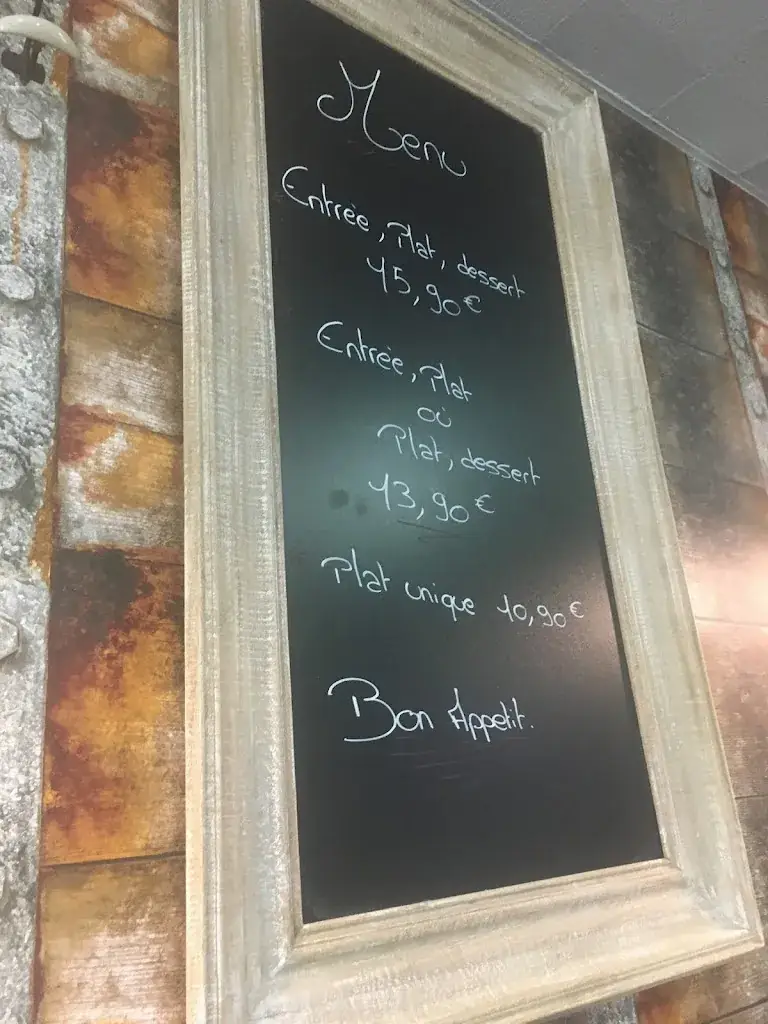 Menu
Entrée, Plat, dessert
15,90€
Entrée, Plat
où
Plat, dessert
13,90€
Plat unique 10,90€
Bon Appetit.